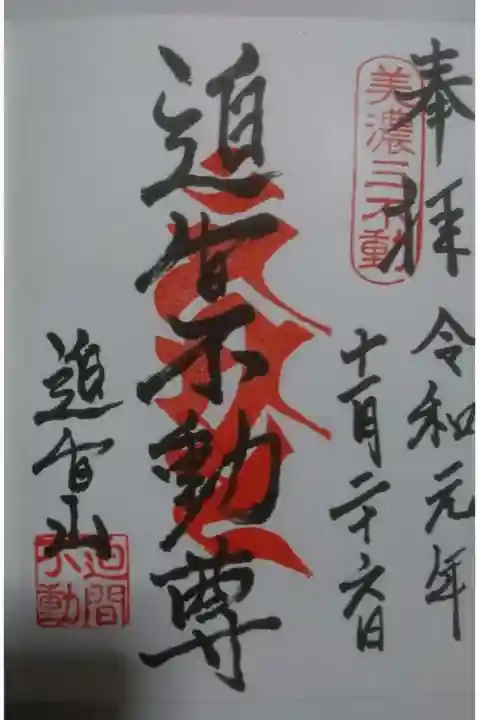 奉拝
美濃三不動
令和元年
十一月二十六日
迫間不動尊
迫間山
迫間不動